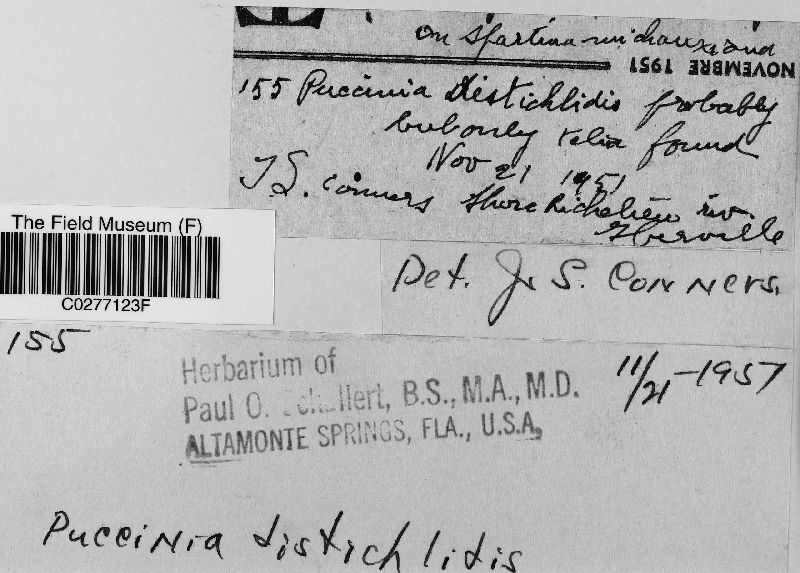 on Spartina michauxiana
NOVEMBRE 1951
155 Puccinia distichlidis probably
but only telia found
Nov 21 1951
J.S. Conners shore Richelieu riv.
Iberville
The Field Museum (F)
C0277123F
Det. J. S. Conners.
155
11/21-1951
Herbarium of
Paul O. Schallert, B.S., M.A., M.D.
ALTAMONTE SPRINGS, FLA., U.S.A.
Puccinia distichlidis